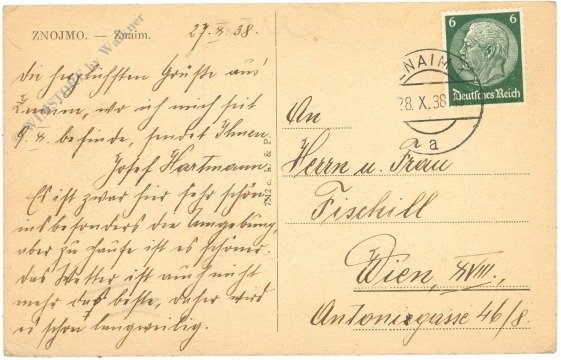 ZNOJMO. — Znaim.
27.X.38.
Die herzlichsten Grüße aus
Znaim, wo ich mich seit
X. befinde, sendet Ihnen
Josef Hartmann.
Es ist zwar hier sehr schön
insbesonders die Umgebung
aber zu Hause ist es schöner.
Das Wetter ist auch nicht
mehr das beste, daher wird
es schon langweilig.
6 6
Deutsches Reich
ZNAIM
28. X. 38
a
An
Herrn u. Frau
Fischill
Wien, XVIII.
Antoniegasse 46/8